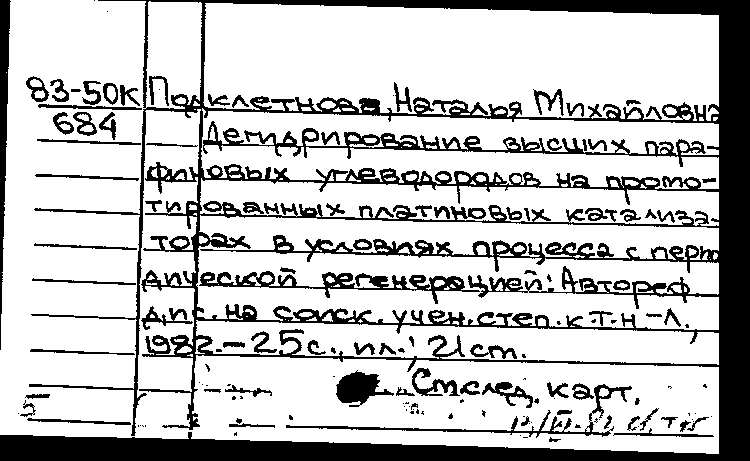 83-50к Подклетнова, Наталья Михайловна
684 Дегидрирование высших пара-
финовых углеводородов на промо-
тированных платиновых катализа-
торах в условиях процесса с перио
дической регенерацией: Автореф.
дис. на соиск. учен. степ. к.т.н.-Л.,
1982.-25с., ил.; 21см.
См.след. карт.
5